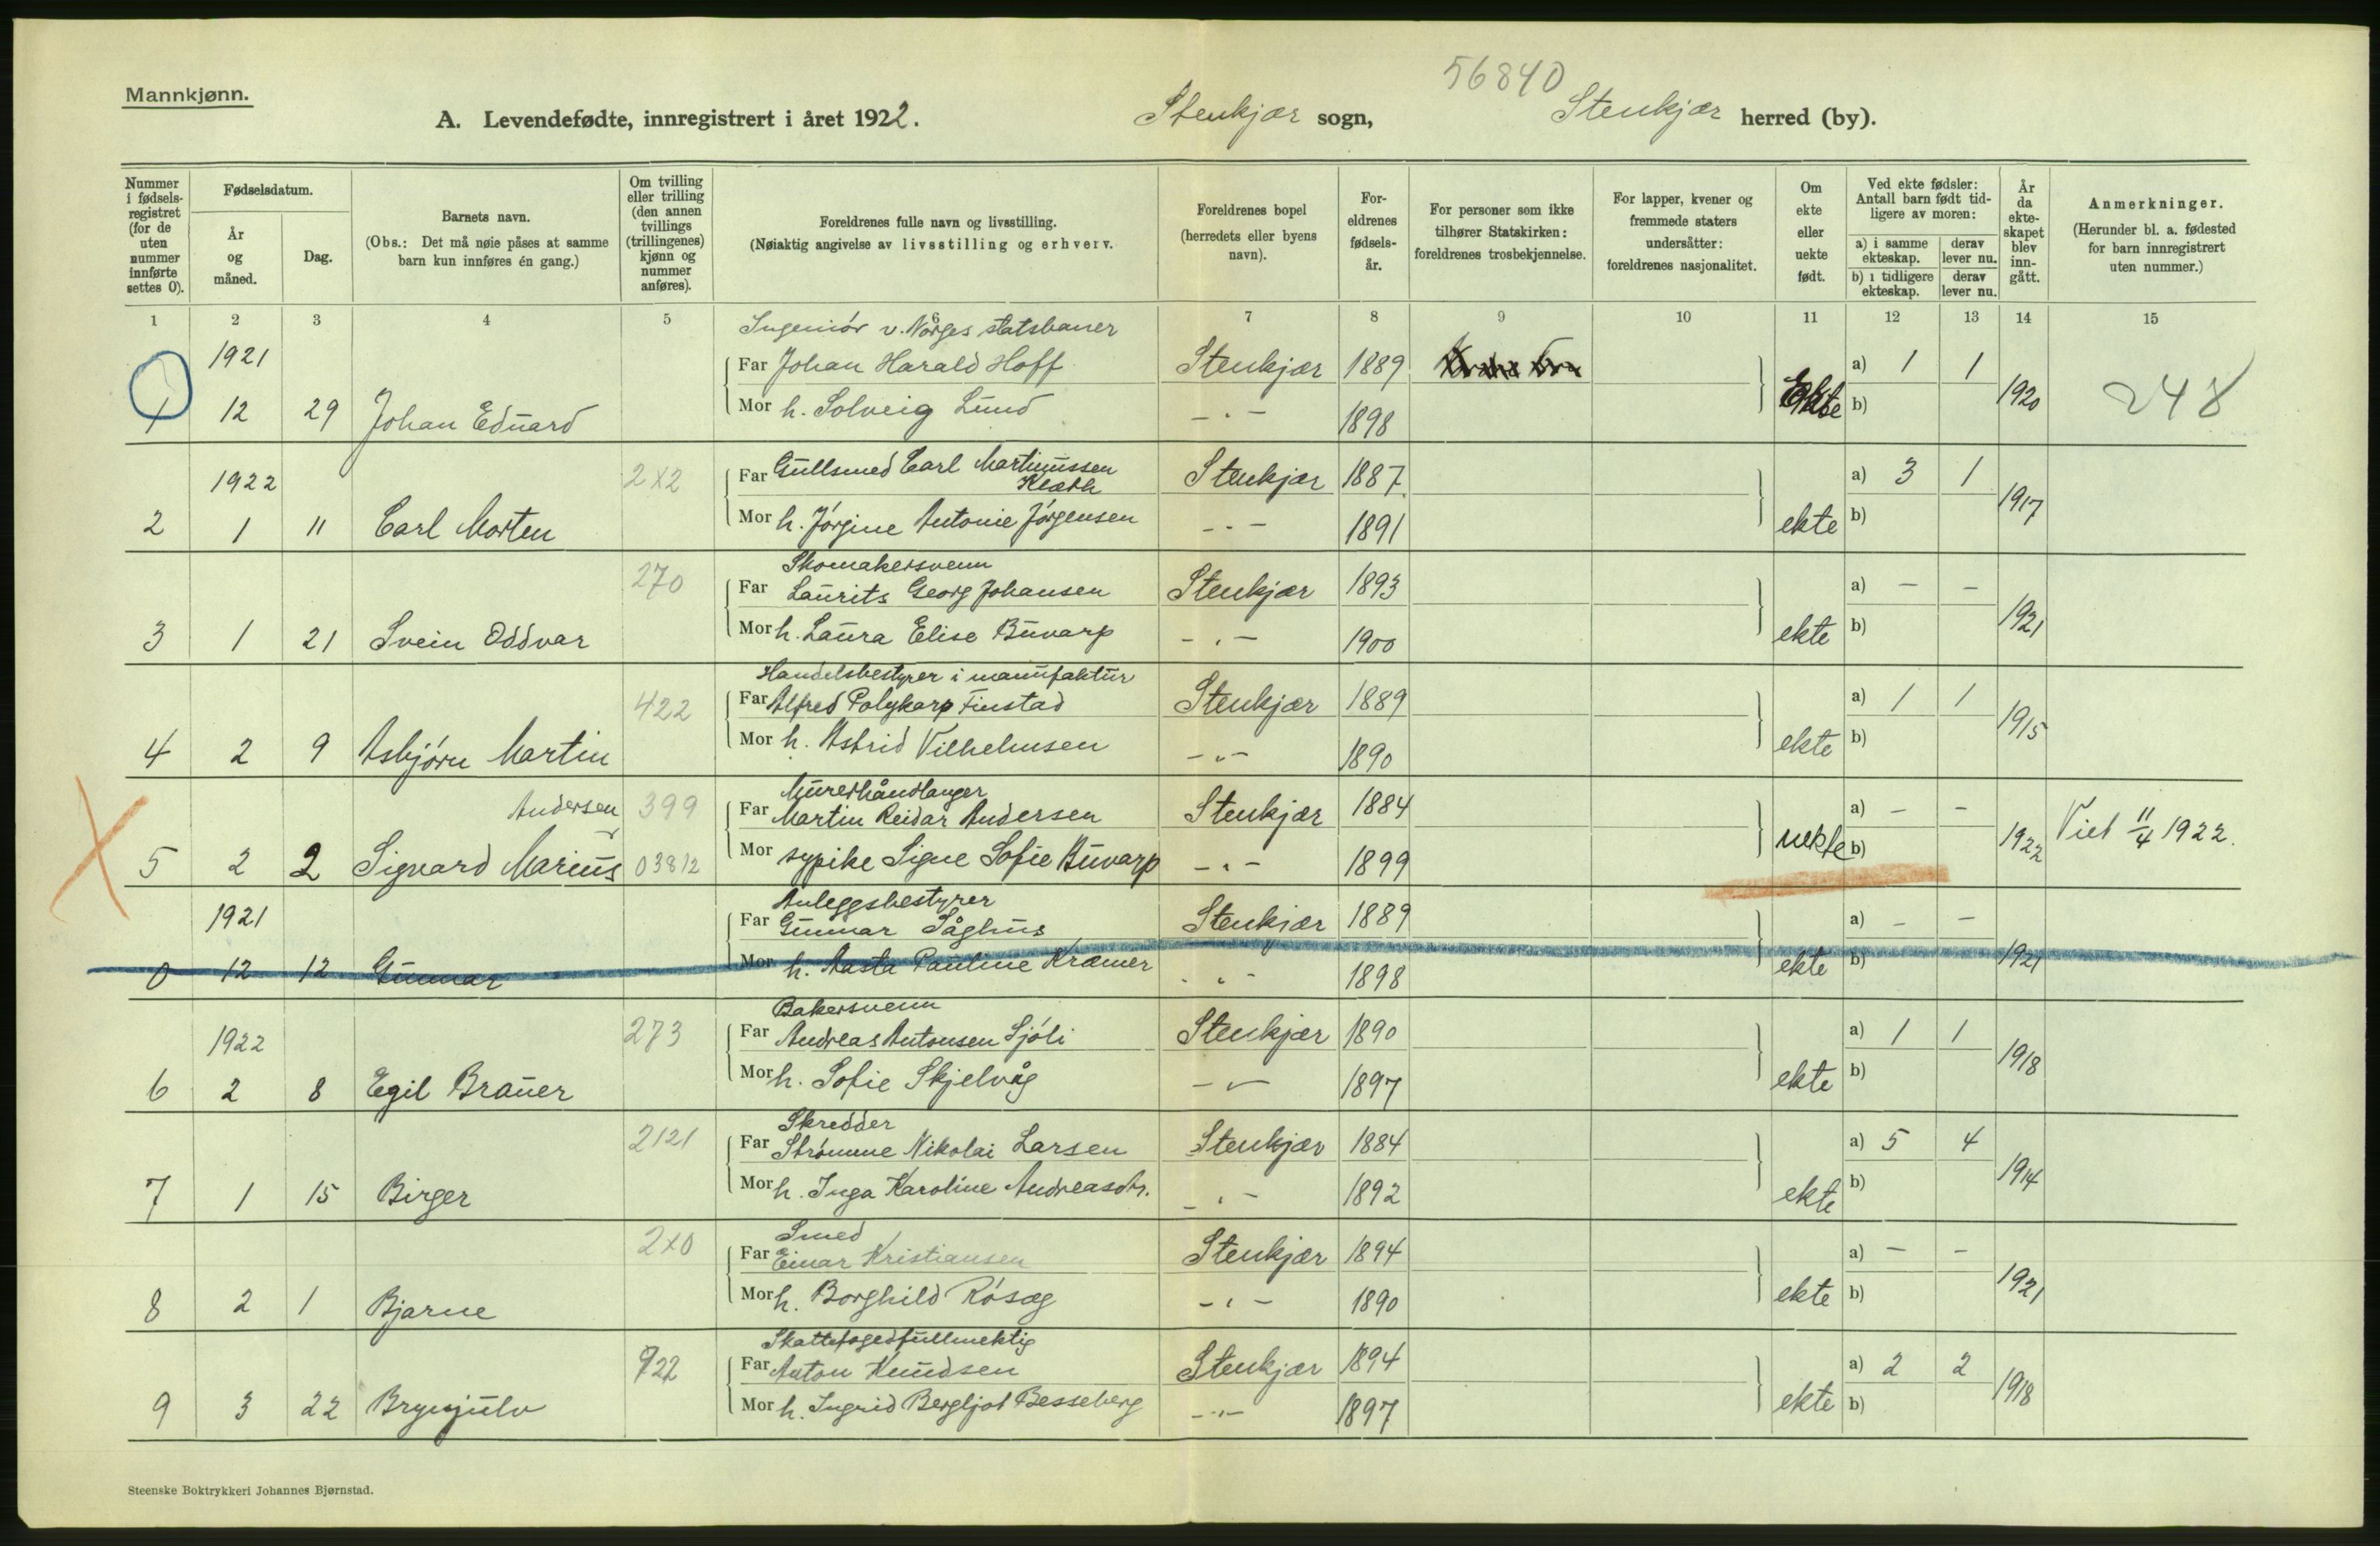 Mannkjønn.
56840
A. Levendefødte, innregistrert i året 1922. Stenkjær sogn, Stenkjær herred (by).
Nummer i fødsels- registret (for de uten nummer innførte settes 0).
Fødselsdatum.
År og måned.
Dag.
Barnets navn.
(Obs.: Det må nøie påses at samme barn kun innføres én gang.)
Om tvilling eller trilling (den annen tvillings (trillingenes) kjønn og nummer anføres).
Foreldrenes fulle navn og livsstilling.
(Nøiaktig angivelse av livsstilling og erhverv.
Foreldrenes bopel (herredets eller byens navn).
For- eldrenes fødsels- år.
For personer som ikke tilhører Statskirken: foreldrenes trosbekjennelse.
For lapper, kvener og fremmede staters undersåtter: foreldrenes nasjonalitet.
Om ekte eller uekte født.
Ved ekte fødsler: Antall barn født tid- ligere av moren:
a) i samme ekteskap. derav lever nu.
b) i tidligere ekteskap. derav lever nu.
År da ekte- skapet blev inn- gått.
Anmerkninger.
(Herunder bl. a. fødested for barn innregistrert uten nummer.)
1 2 3 4 5 6 7 8 9 10 11 12 13 14 15
Ingeniør v. Norges statsbaner
1921 Far Johan Harald Hoff Stenkjær 1889 a) 1 1
1 12 29 Johan Eduard Mor h. Solveig Lund - " - 1898 Ekte b) 1920 248
1922 2x2 Far Gullsmed Carl Martinussen Klæth Stenkjær 1887 a) 3 1
2 1 11 Carl Morten Mor h. Jørgine Antonie Jørgensen - " - 1891 ekte b) 1917
Skomakersvenn
270 Far Laurits Georg Johansen Stenkjær 1893 a) - -
3 1 21 Svein Oddvar Mor h. Laura Elise Buvarp - " - 1900 ekte b) 1921
Handelsbestyrer i manufaktur
422 Far Alfred Polykarp Finstad Stenkjær 1889 a) 1 1
4 2 9 Asbjørn Martin Mor h. Astrid Vilhelmsen - " - 1890 ekte b) 1915
Murerhåndlanger
Andersen 399 Far Martin Reidar Andersen Stenkjær 1884 a) - -
5 2 2 Sigvard Marius 03812 Mor sypike Signe Sofie Buvarp - " - 1899 uekte b) 1922 Viet 11/4 1922.
Anleggsbestyrer
1921 Far Gunnar Såghus Stenkjær 1889 a) - -
0 12 12 Gunnar Mor h. Aasta Pauline Kræmer - " - 1898 ekte b) 1921
Bakersvenn
1922 273 Far Andreas Antonsen Sjøli Stenkjær 1890 a) 1 1
6 2 8 Egil Brauer Mor h. Sofie Skjelvåg - " - 1897 ekte b) 1918
Skredder
2121 Far Strømme Nikolai Larsen Stenkjær 1884 a) 5 4
7 1 15 Birger Mor h. Inga Karoline Andreasdtr. - " - 1892 ekte b) 1914
Smed
2x0 Far Einar Kristiansen Stenkjær 1894 a) - -
8 2 1 Bjarne Mor h. Borghild Røsæg - " - 1890 ekte b) 1921
Skattefogedfullmektig
722 Far Anton Knudsen Stenkjær 1894 a) 2 2
9 3 22 Brynjulv Mor h. Ingrid Bergljot Besseberg - " - 1897 ekte b) 1918
Steenske Boktrykkeri Johannes Bjørnstad.